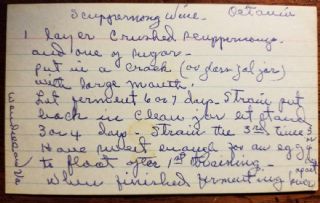 Scuppernong Wine -
1 layer crushed scuppernongs
and one of sugar -
put in a crock (or glass jar)
with large mouth.
Let ferment 6 or 7 days - Strain put
back in clean jar let stand
3 or 4 days - Strain the 3rd time
Have sweet enough for an egg
to float after 1st straining -
When finished fermenting